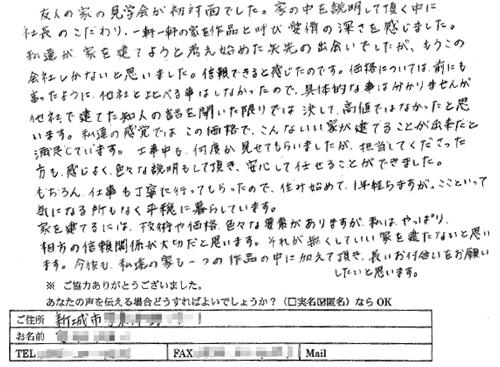 友人の家の見学会が初対面でした。家の中を説明して頂く中に
社長のこだわり、一軒一軒の家を作品と呼び愛情の深さを感じました。
私達が、家を建てようと考え始めた矢先の出会いでしたが、もうこの
会社しかないと思いました。信頼できると感じたのです。価格については、前にも
言ったように、他社と比べる事はしなかったので、具体的な事は分かりませんが
他社で建てた知人の話を聞いた限りでは決して、高値ではなかったと思
います。私達の感覚では この価格で、こんないい家が建てることが出来たと
満足しています。工事中も、何度か見せてもらいましたが、担当してくださった
方も、感じよく、色々な説明もして頂き、安心して任せることができました。
もちろん、仕事も丁寧に行ってもらったので、住み始めて、1年経ちますが、ここといって
気になる所もなく平穏に暮らしています。
家を建てるには、技術や価格、色々な要素がありますが、私は、やっぱり、
相方の信頼関係が大切だと思います。それが無くしていい家を建たないと思い
ます。今後も、私達の家も一つの作品の中に加えて頂き、長いお付合いをお願い
したいと思います。
※ ご協力ありがとうございました。
あなたの声を伝える場合どうすればよいでしょうか?(□実名図匿名)ならOK
ご住所 新城市
お名前
TEL FAX Mail